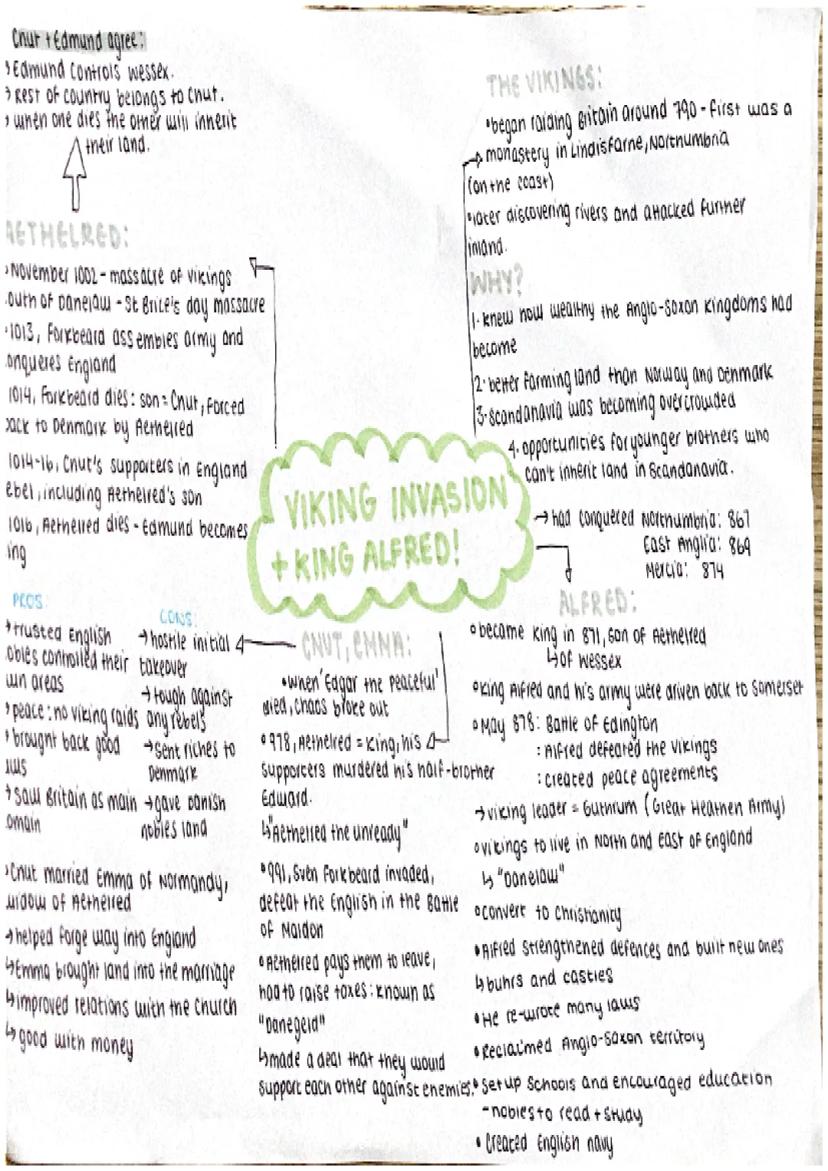 Cnut + Edmund agree:
Edmund controls wessex.
Rest of country belongs to Cnut.
when one dies the other will inherit
their land.
AETHELRED:
November 1002 - massacre of vikings
outh of Danelaw - St Brice's day massacre
1013, Forkbeard assembles army and
onqueres England
1014, Forkbeard dies: son = Cnut, Forced
back to Denmark by Aethelred
1014-16, Cnut's supporters in England
ebel, including Aethelred's son
1016, Aethelred dies - Edmund becomes
ing
THE VIKINGS:
•began raiding Britain around 790 - first was a
→ monastery in Lindisfarne, Northumbria
(on the coast)
•later discovering rivers and attacked further
inland.
WHY?
1. knew how wealthy the Anglo-Saxon kingdoms had
become
2. better farming land than Norway and Denmark
3. Scandanavia was becoming overcrowded
4. opportunities for younger brothers who
can't inherit land in Scandanavia.
→ had conquered Northumbria: 867
East Anglia: 869
Mercia: 874
VIKING INVASION
+ KING ALFRED!
PROS:
→ trusted English
obles controlled their
wn areas
→ peace: no viking raids
→ brought back good
aws
→ saw Britain as main
omain
CONS:
→ hostile initial
takeover
→ tough against
any rebels
→ sent riches to
Denmark
→ gave Danish
nobles land
•Cnut married Emma of Normandy,
widow of Aethelred
→ helped forge way into England
↳ Emma brought land into the marriage
↳ improved relations with the church
↳ good with money
CNUT, EMMA:
•When 'Edgar the Peaceful'
died, chaos broke out
•978, Aethelred = King, his
supporters murdered his half-brother
Edward.
↳ "Aethelred the unready"
•991, Sven Forkbeard invaded,
defeat the English in the Battle
of Maldon
•Aethelred pays them to leave,
had to raise taxes: known as
"Danegeld"
↳ made a deal that they would
support each other against enemies.
ALFRED:
•became King in 871, son of Aethelred
↳ of Wessex
•King Alfred and his army were driven back to Somerset
•May 878: Battle of Edington
: Alfred defeated the Vikings
: created peace agreements
→ viking leader = Guthrum (Great Heathen Army)
•vikings to live in North and East of England
↳ "Danelaw"
•convert to Christianity
•Alfred strengthened defences and built new ones
↳ buhrs and castles
•He re-wrote many laws
•Reclaimed Anglo-Saxon territory
•Set up schools and encouraged education
- nobles to read + study
•Created English navy